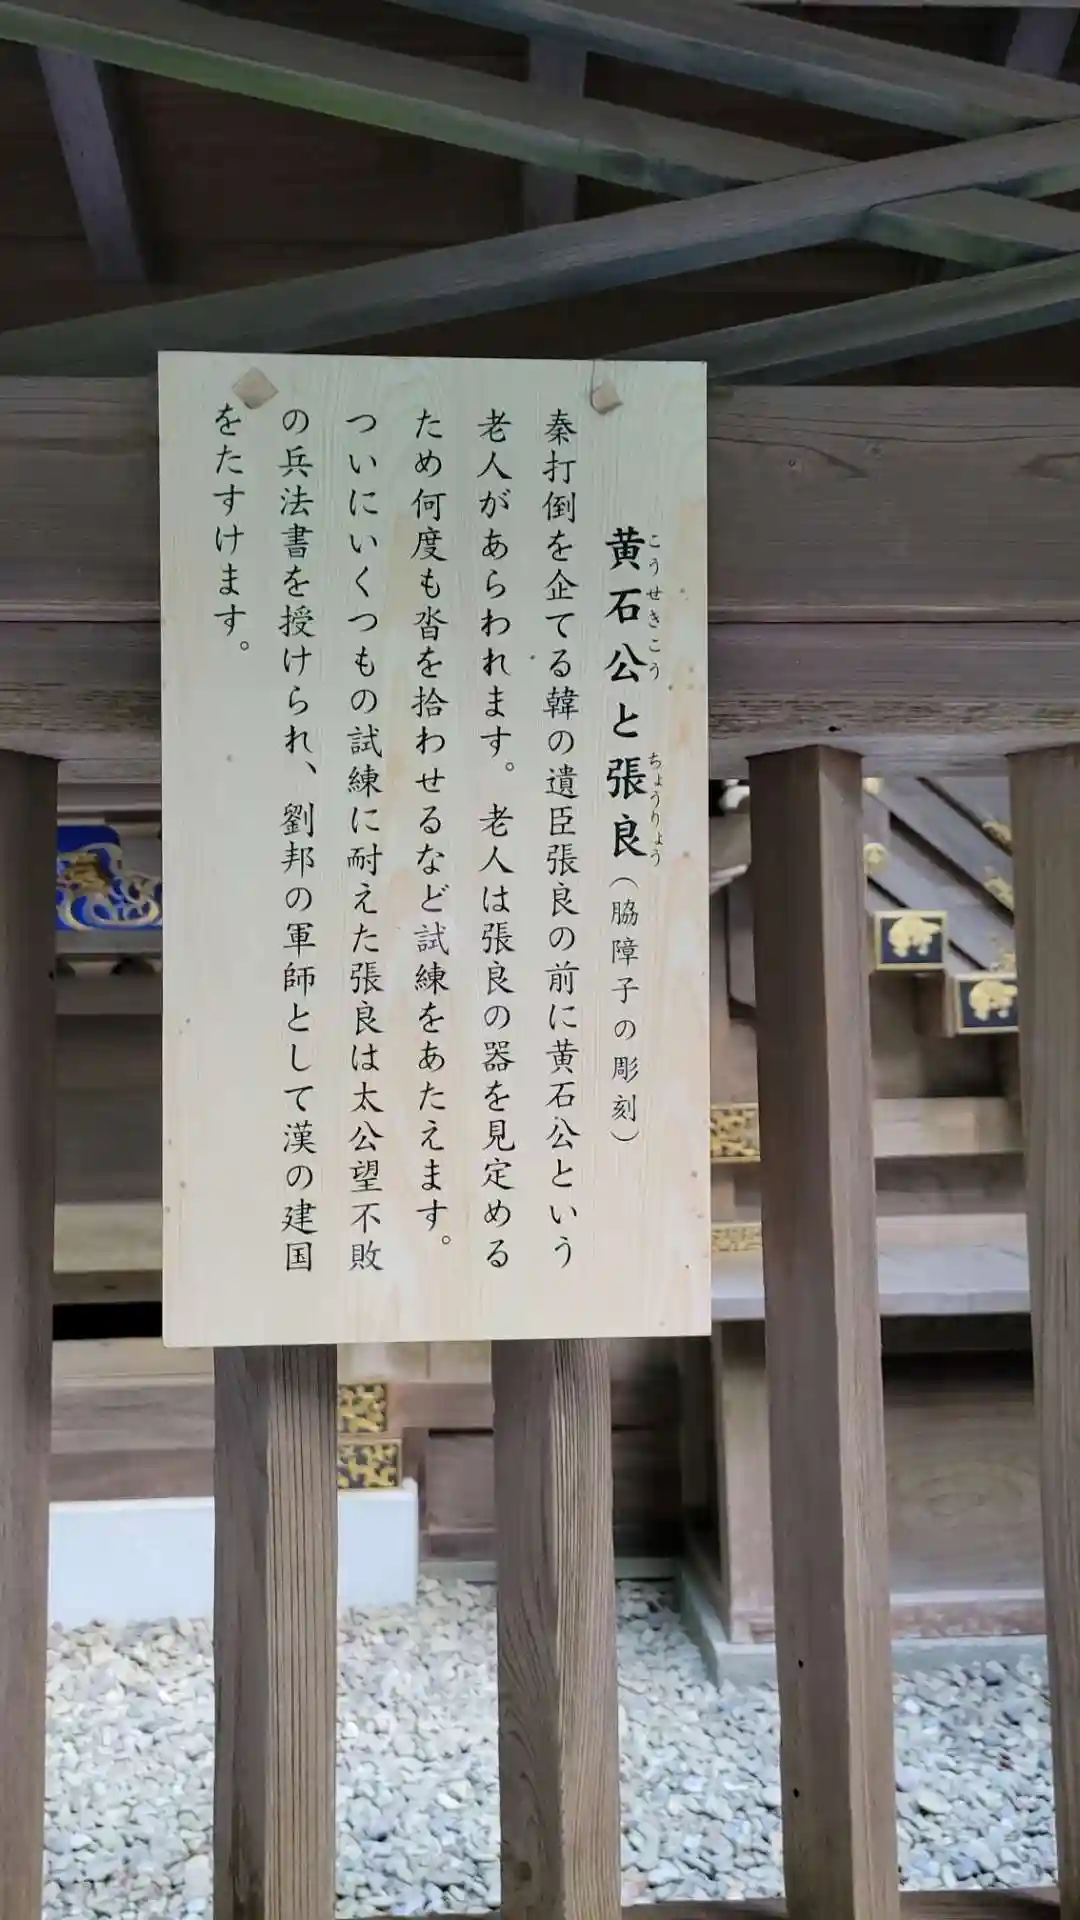 黄石公と張良（脇障子の彫刻）
こうせきこう
ちょうりょう
秦打倒を企てる韓の遺臣張良の前に黄石公という
老人があらわれます。老人は張良の器を見定める
ため何度も沓を拾わせるなど試練をあたえます。
ついにいくつもの試練に耐えた張良は太公望不敗
の兵法書を授けられ、劉邦の軍師として漢の建国
をたすけます。